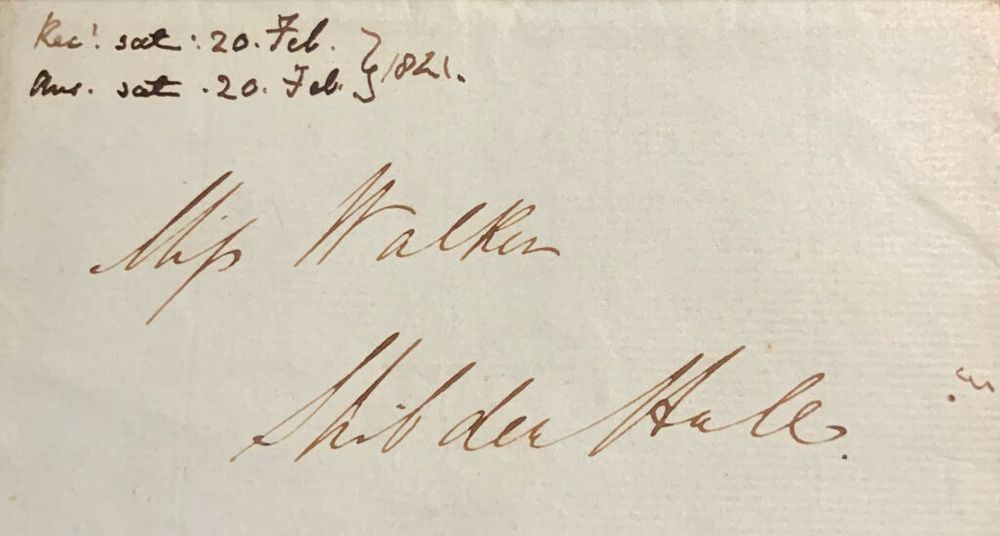 Rec.d sat: 20. Feb.
Ans. sat. 20. Feb. } 1841.
Miss Walker
Shibden Hall.